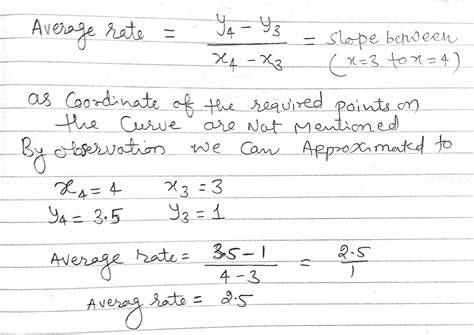 Average rate = y₄ - y₃ / x₄ - x₃ = slope between (x=3 to x=4)
as Coordinate of the required points on
the Curve are Not Mentioned
By observation we can Approximated to
x₄ = 4 x₃ = 3
y₄ = 3.5 y₃ = 1
Average rate = 3.5 - 1 / 4 - 3 = 2.5 / 1
Averag rate = 2.5